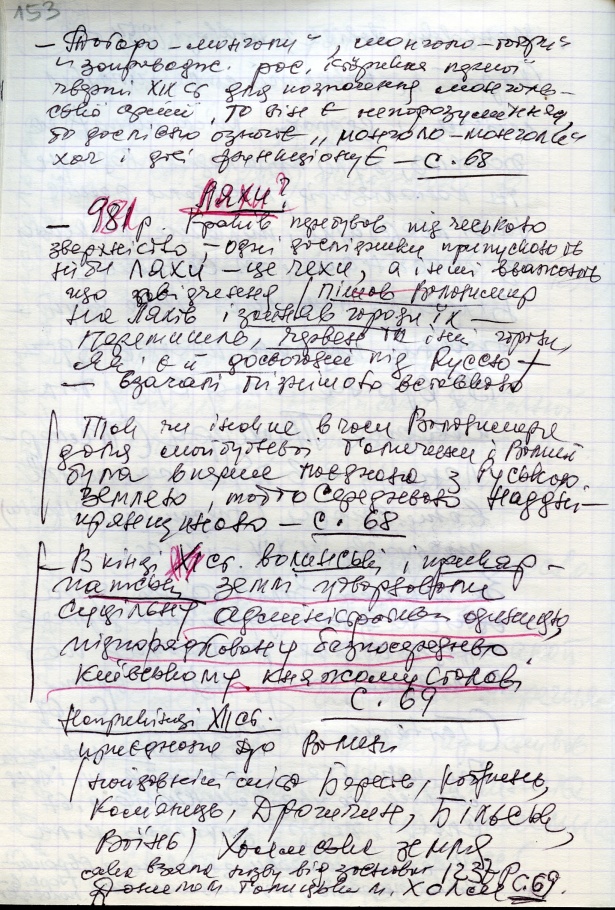 153
— Татаро-монголи", "монголо-татари"
запровадж. рос. істрики першої
чверті ХІХ ст для позначення монголь-
ської армії, то він є непорозуміння,
бо дослівно означає „монголо-монголи"
хоч і досі функціонує — с. 68
Ляхи?
— 981р. Краків перебував під чеською
зверхністю, — одні дослідники припускають
ніби ляхи — це чехи, а інші вважають
що свідчення / пішов Володимир
на ляхів і зайняв городи їх —
Перемишль, Червен та інші городи,
які є й досьогодні під Руссю +
— взагалі пізнішою вставкою
Так чи інакше в часи Володимира
доля майбутньої Галичини і Волині
була вперше поєднана з Руською
землею, тобто Середньою Наддні-
прянщиною — с. 68
— В кінці ХІ ст. волинські і прикар-
патські землі утворювали
суцільну адміністративн одиницю,
підпорядковану безпосередньо
київському княжому столові
с. 69
Наприкінці ХІІ ст.
приєднано до Волині
/ надбузькі міста Берестя, Кобринь,
Кам'янець, Дрогичин, Більськ,
Воїнь) Холмська земля
сама взяла назву від засновин 1237р
Данилом Галицьким м. Холм с. 69.